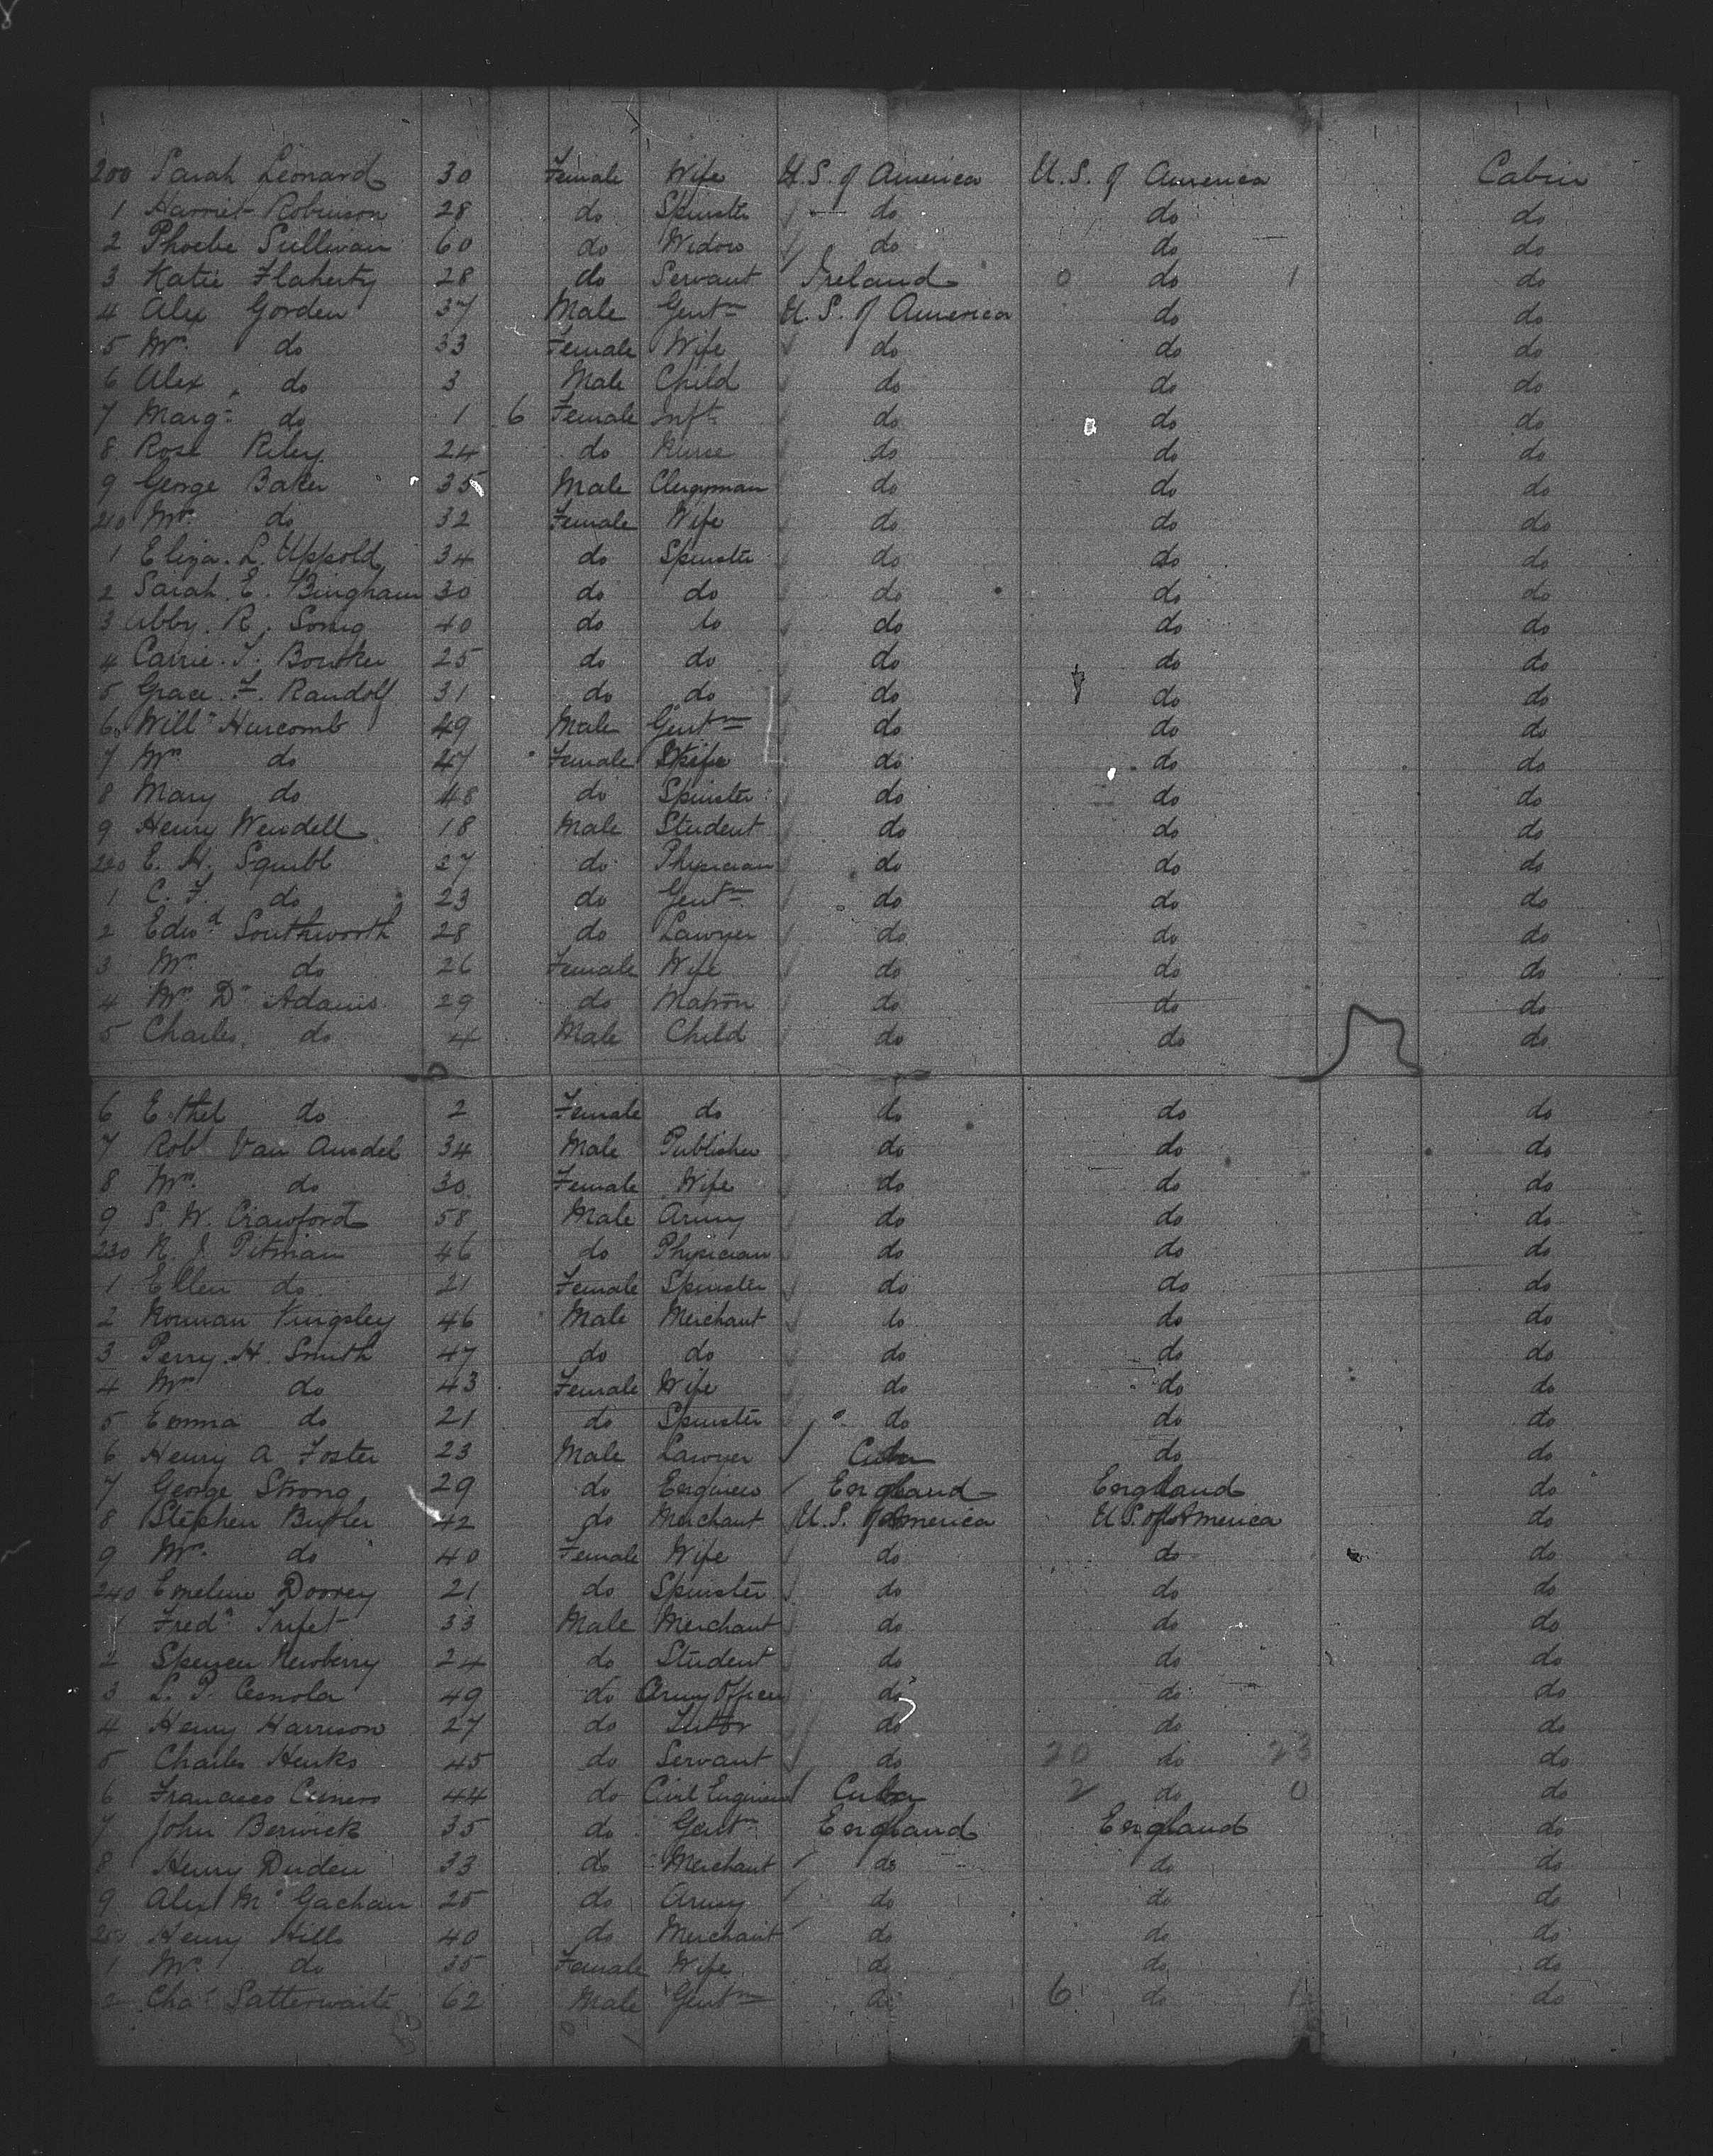 200 Sarah Leonard 30 Female Wife U.S. of America U.S. of America Cabin
1 Harriet Robinson 28 do Spinster do do do
2 Phoebe Sullivan 60 do Widow do do do
3 Katie Flaherty 28 do Servant Ireland 0 do 1 do
4 Alex Gorden 37 Male Gentm U.S. of America do do
5 Mrs do 33 Female Wife do do do
6 Alex do 3 Male Child do do do
7 Margt do 1 6 Female Inft do do do
8 Rose Riley 24 do Nurse do do do
9 George Baker 35 Male Clergyman do do do
210 Mrs do 32 Female Wife do do do
1 Eliza. L. Uppold 34 do Spinster do do do
2 Sarah. E. Bingham 30 do do do do do
3 Abby. R. 40 do do do do do
4 Carrie. T. Bowker 25 do do do do do
5 Grace. F. Randolf 31 do do do do do
6 Willm Huscomb 49 Male Gentm do do do
7 Mrs do 47 Female Wife do do do
8 Mary do 48 do Spinster do do do
9 Henry Wendell 18 Male Student do do do
220 E. H. Squibb 27 do Physician do do do
1 C. F. do 23 do Gentm do do do
2 Edwd Southworth 28 do Lawyer do do do
3 Mrs do 26 Female Wife do do do
4 Mrs Dr Adams 29 do Matron do do do
5 Charles do 4 Male Child do do do
6 Ethel do 2 Female do do do do
7 Robt Van Ausdel 34 Male Publisher do do do
8 Mrs do 30 Female Wife do do do
9 S. W. Crawford 58 Male Army do do do
230 R. J. Pitman 46 do Physician do do do
1 Ellen do 21 Female Spinster do do do
2 Norman Kingsley 46 Male Merchant do do do
3 Perry. H. Smith 47 do do do do do
4 Mrs do 43 Female Wife do do do
5 Emma do 21 do Spinster do do do
6 Henry A Foster 23 Male Lawyer Cuba do do
7 George Strong 29 do Engineer England England do
8 Stephen Butler 42 do Merchant U.S. of America U.S. of America do
9 Mrs do 40 Female Wife do do do
240 Emeline Doorey 21 do Spinster do do do
1 Fredk Trifet 33 Male Merchant do do do
2 Spencer Newberry 24 do Student do do do
3 L. P. Cesnola 49 do Army Officer do do do
4 Henry Harrison 27 do Tutor do do do
5 Charles Henks 45 do Servant do 20 do 23 do
6 Francisco Cisneros 44 do Civil Engineer Cuba 2 do 0 do
7 John Berwick 35 do Gentn England England do
8 Henry Duden 33 do Merchant do do do
9 Alex Mc Gachan 25 do Army do do do
250 Henry Hills 40 do Merchant do do do
1 Mrs do 35 Female Wife do do do
2 Chas Satterwaite 62 Male Gentm do 6 do 1 do